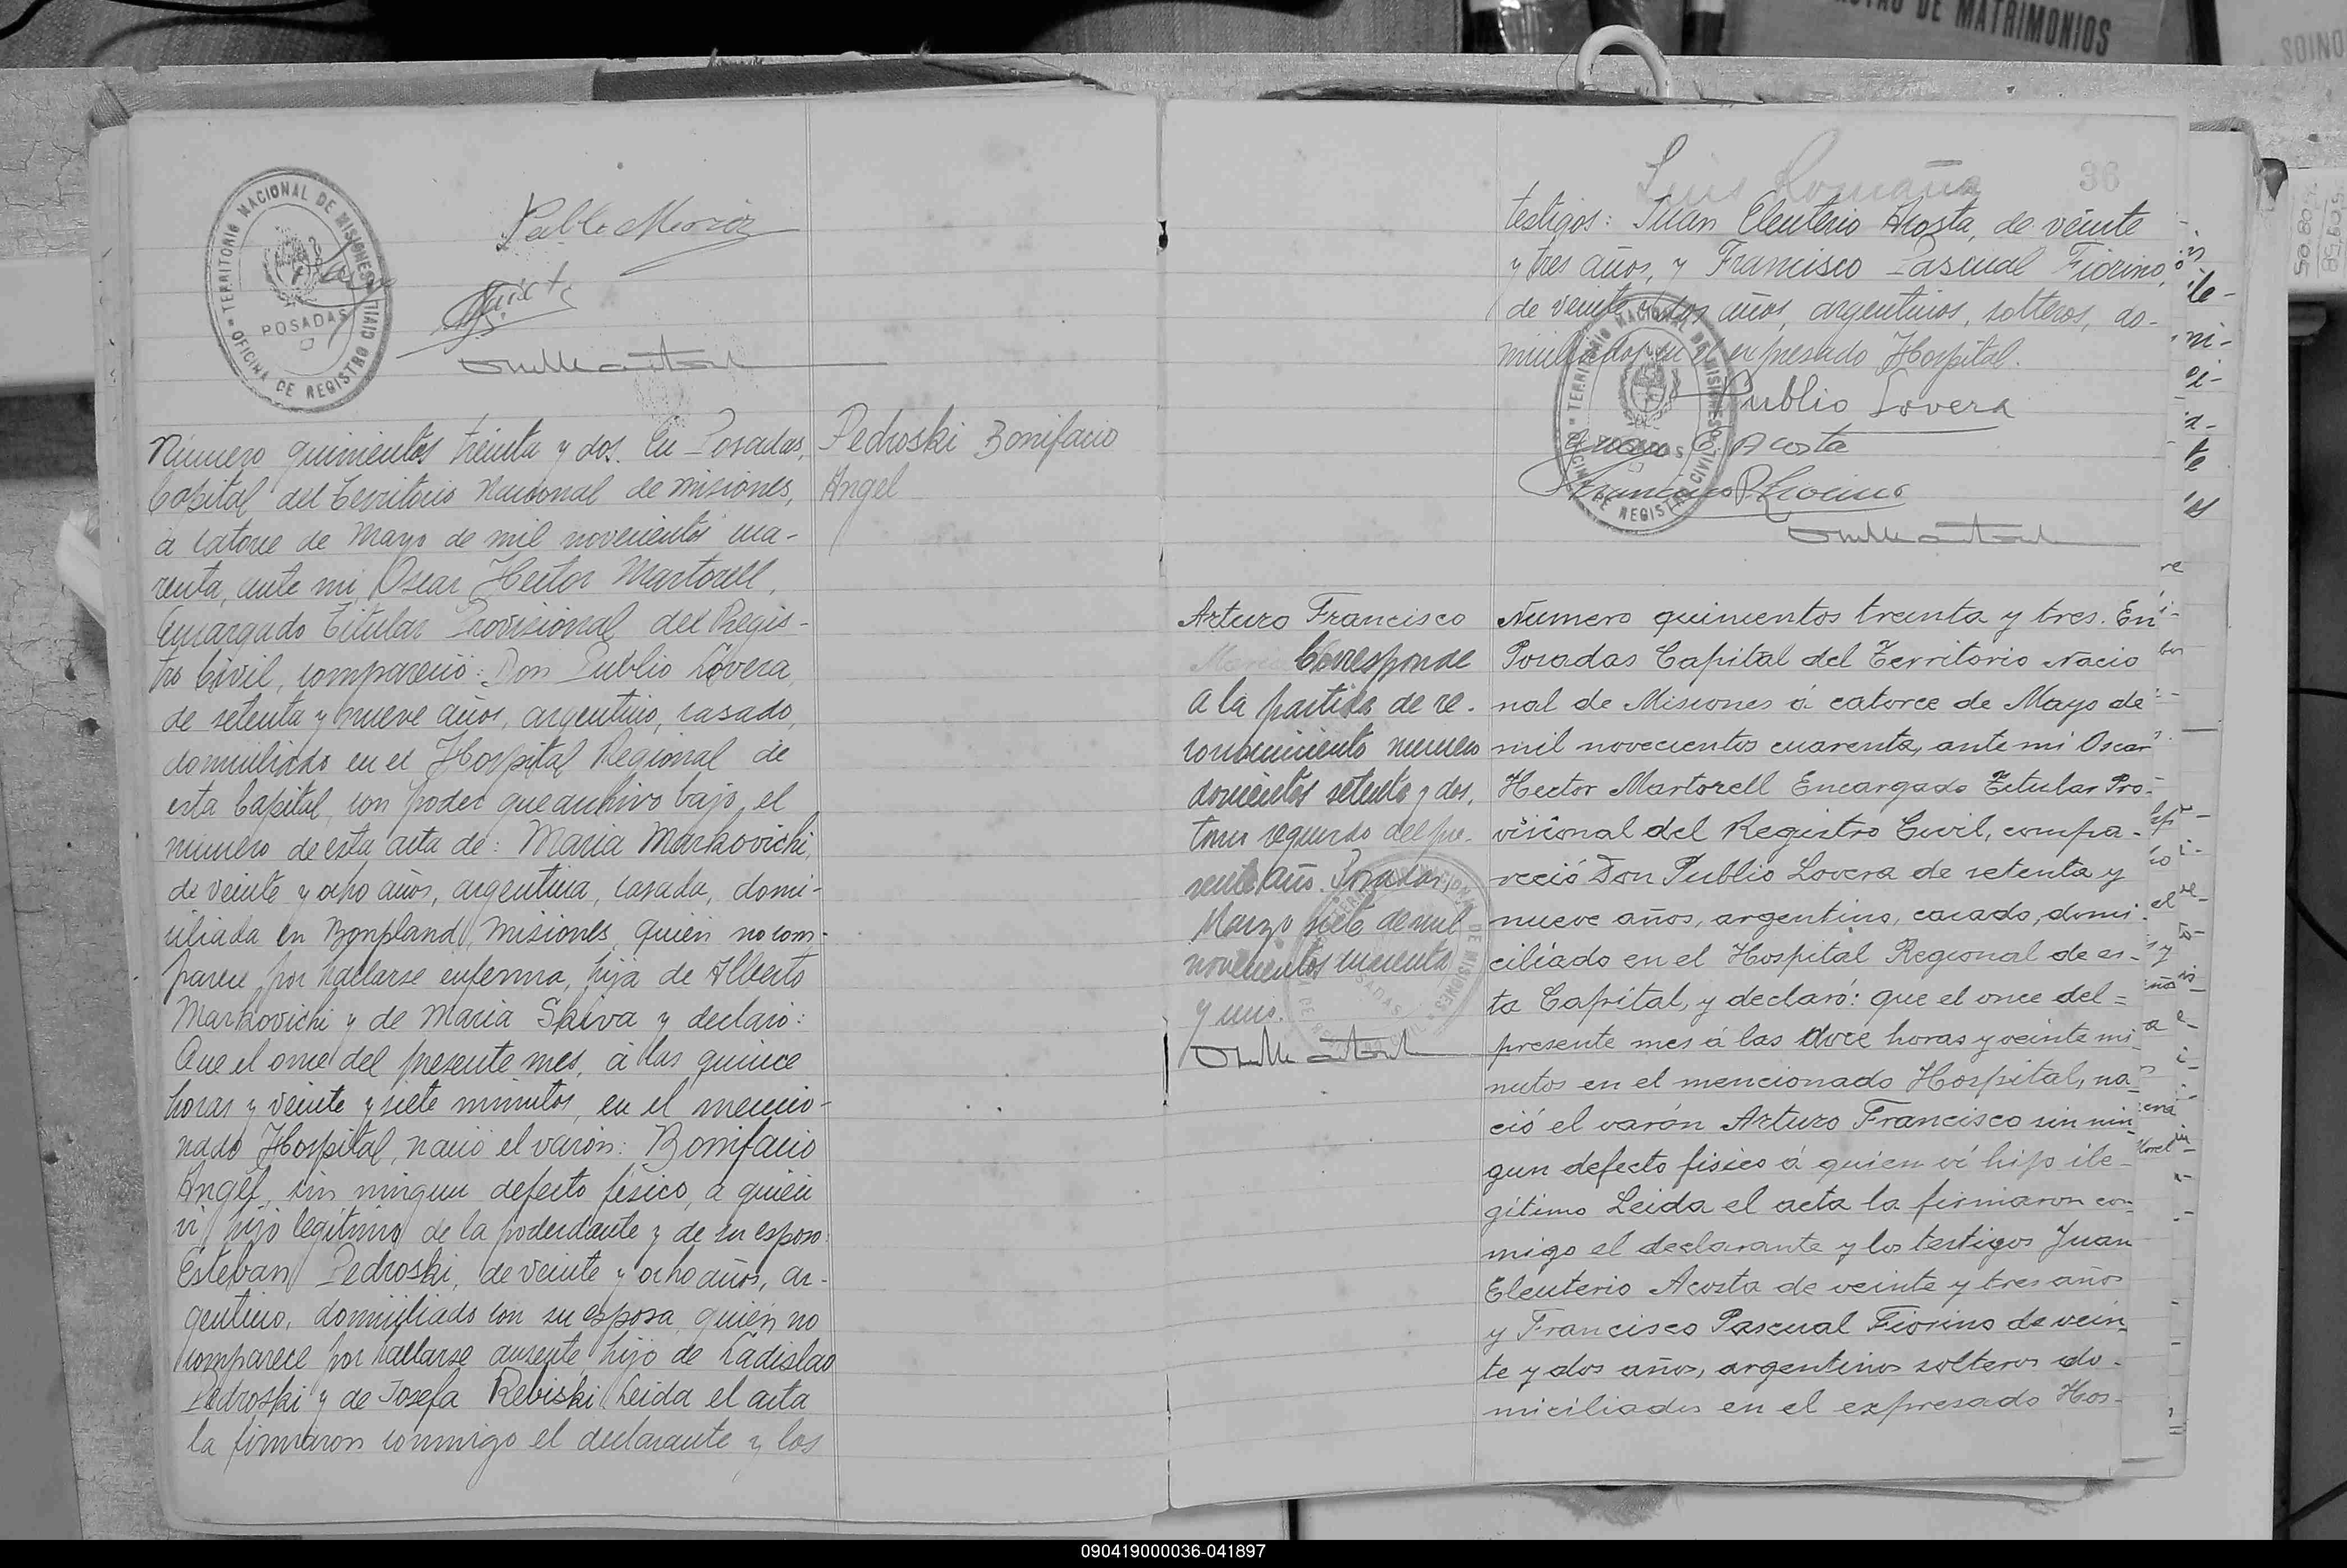 REGISTRO DE MATRIMONIOS
TERRITORIO NACIONAL DE MISIONES
POSADAS
OFICINA DE REGISTRO CIVIL
Número quinientos treinta y dos. En Posadas,
Capital del Territorio Nacional de Misiones,
a catorce de Mayo de mil novecientos cua-
renta, ante mi, Oscar Hector Martorell,
Encargado Titular Provisional del Regis-
tro Civil, compareció: Don Publio Lovera,
de setenta y nueve años, argentino, casado,
domiciliado en el Hospital Regional de
esta Capital, con poder que archivo bajo el
número de esta acta de: Maria Markovichi,
de veinte y ocho años, argentina, casada, domi-
ciliada en Bonpland, Misiones, quien no com-
parece por hallarse enferma, hija de Alberto
Markovichi y de Maria Skiva y declaró:
Que el once del presente mes, á las quince
horas y veinte y siete minutos, en el mencio-
nado Hospital, nació el varón: Bonifacio
Angel, sin ningun defecto físico, a quien
vi, hijo legítimo de la poderdante y de su esposo:
Esteban Pedroski, de veinte y ocho años, ar-
gentino, domiciliado con su esposa, quien no
comparece por hallarse ausente, hijo de Ladislao
Pedroski y de Josefa Rebiski. Leida el acta
la firmaron conmigo el declarante y los
Pedroski Bonifacio
Angel
36
testigos: Juan Eleuterio Acosta, de veinte
y tres años, y Francisco Pascual Fiorino,
de veinte y dos años, argentinos, solteros, do-
miciliados en el expresado Hospital.
TERRITORIO NACIONAL DE MISIONES
POSADAS
OFICINA DE REGISTRO CIVIL
Publio Lovera
Juan E. Acosta
Francisco P. Fiorino
Arturo Francisco
Corresponde
a la partida de re-
conocimiento numero
doscientos setenta y dos,
tomo segundo del pre-
sente año. Posadas,
Marzo siete de mil
novecientos cuarenta
y uno.
Numero quinientos treinta y tres. En
Posadas Capital del Territorio Nacio
nal de Misiones á catorce de Mayo de
mil novecientos cuarenta, ante mi Oscar
Hector Martorell Encargado Titular Pro-
visional del Registro Civil, compa-
reció Don Publio Lovera de setenta y
nueve años, argentino, casado, domi
ciliado en el Hospital Regional de es-
ta Capital, y declaró: que el once del=
presente mes á las doce horas y veinte mi
nutos en el mencionado Hospital, na
ció el varón Arturo Francisco sin nin
gun defecto fisico á quien ví hijo ile-
gítimo Leida el acta la firmaron con
migo el declarante y los testigos Juan
Eleuterio Acosta de veinte y tres años
y Francisco Pascual Fiorino de vein
te y dos años, argentinos solteros do-
miciliados en el expresado Hos-
090419000036-041897